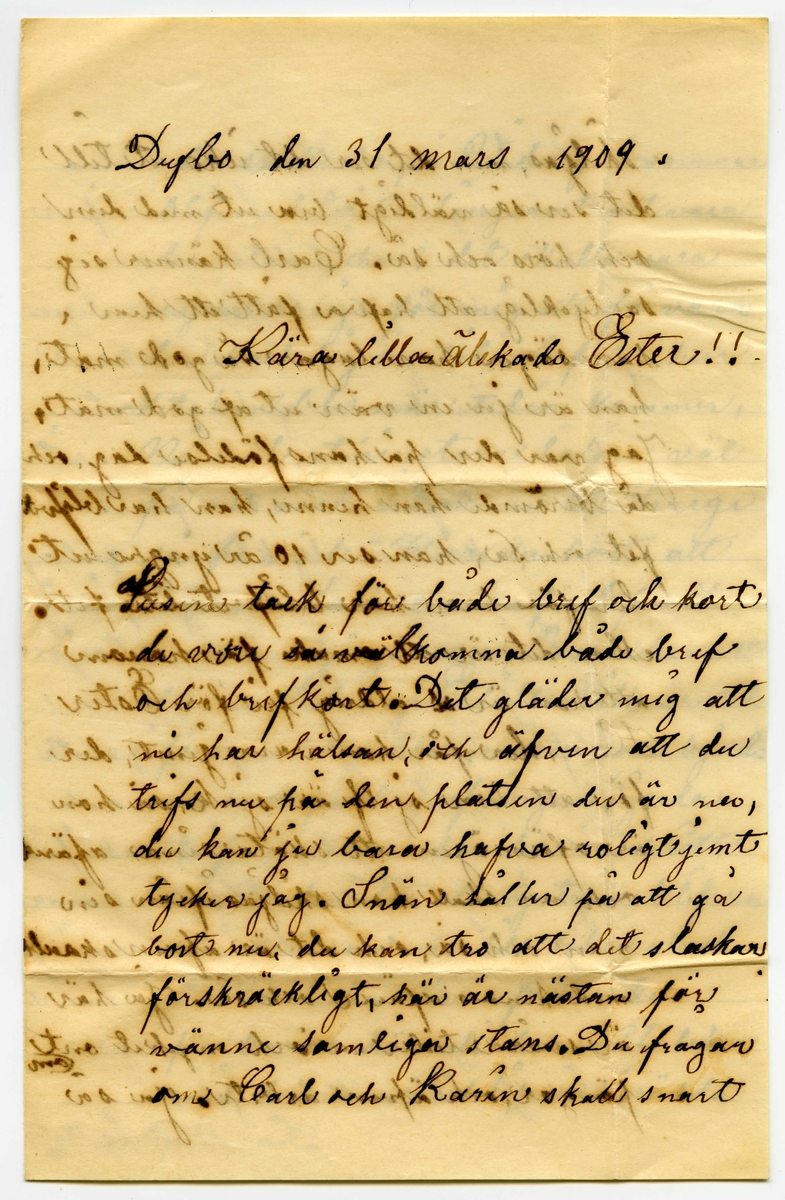 Dufbo den 31 mars 1909.
Kära lilla älskade Ester!!
Tusen tack för både bref och kort
de vore så välkomna både bref
och brefkort. Det gläder mig att
ni har hälsan, och äfven att du
trifs nu på den platsen du är nu,
du kan ju bara hafva roligt jemt
tycker jag. Snön håller på att gå
bort nu, du kan tro att det slaskar
förskräckligt, här är nästan för
vänne samliga stans. Du frågar
om Carl och Karin skall snart